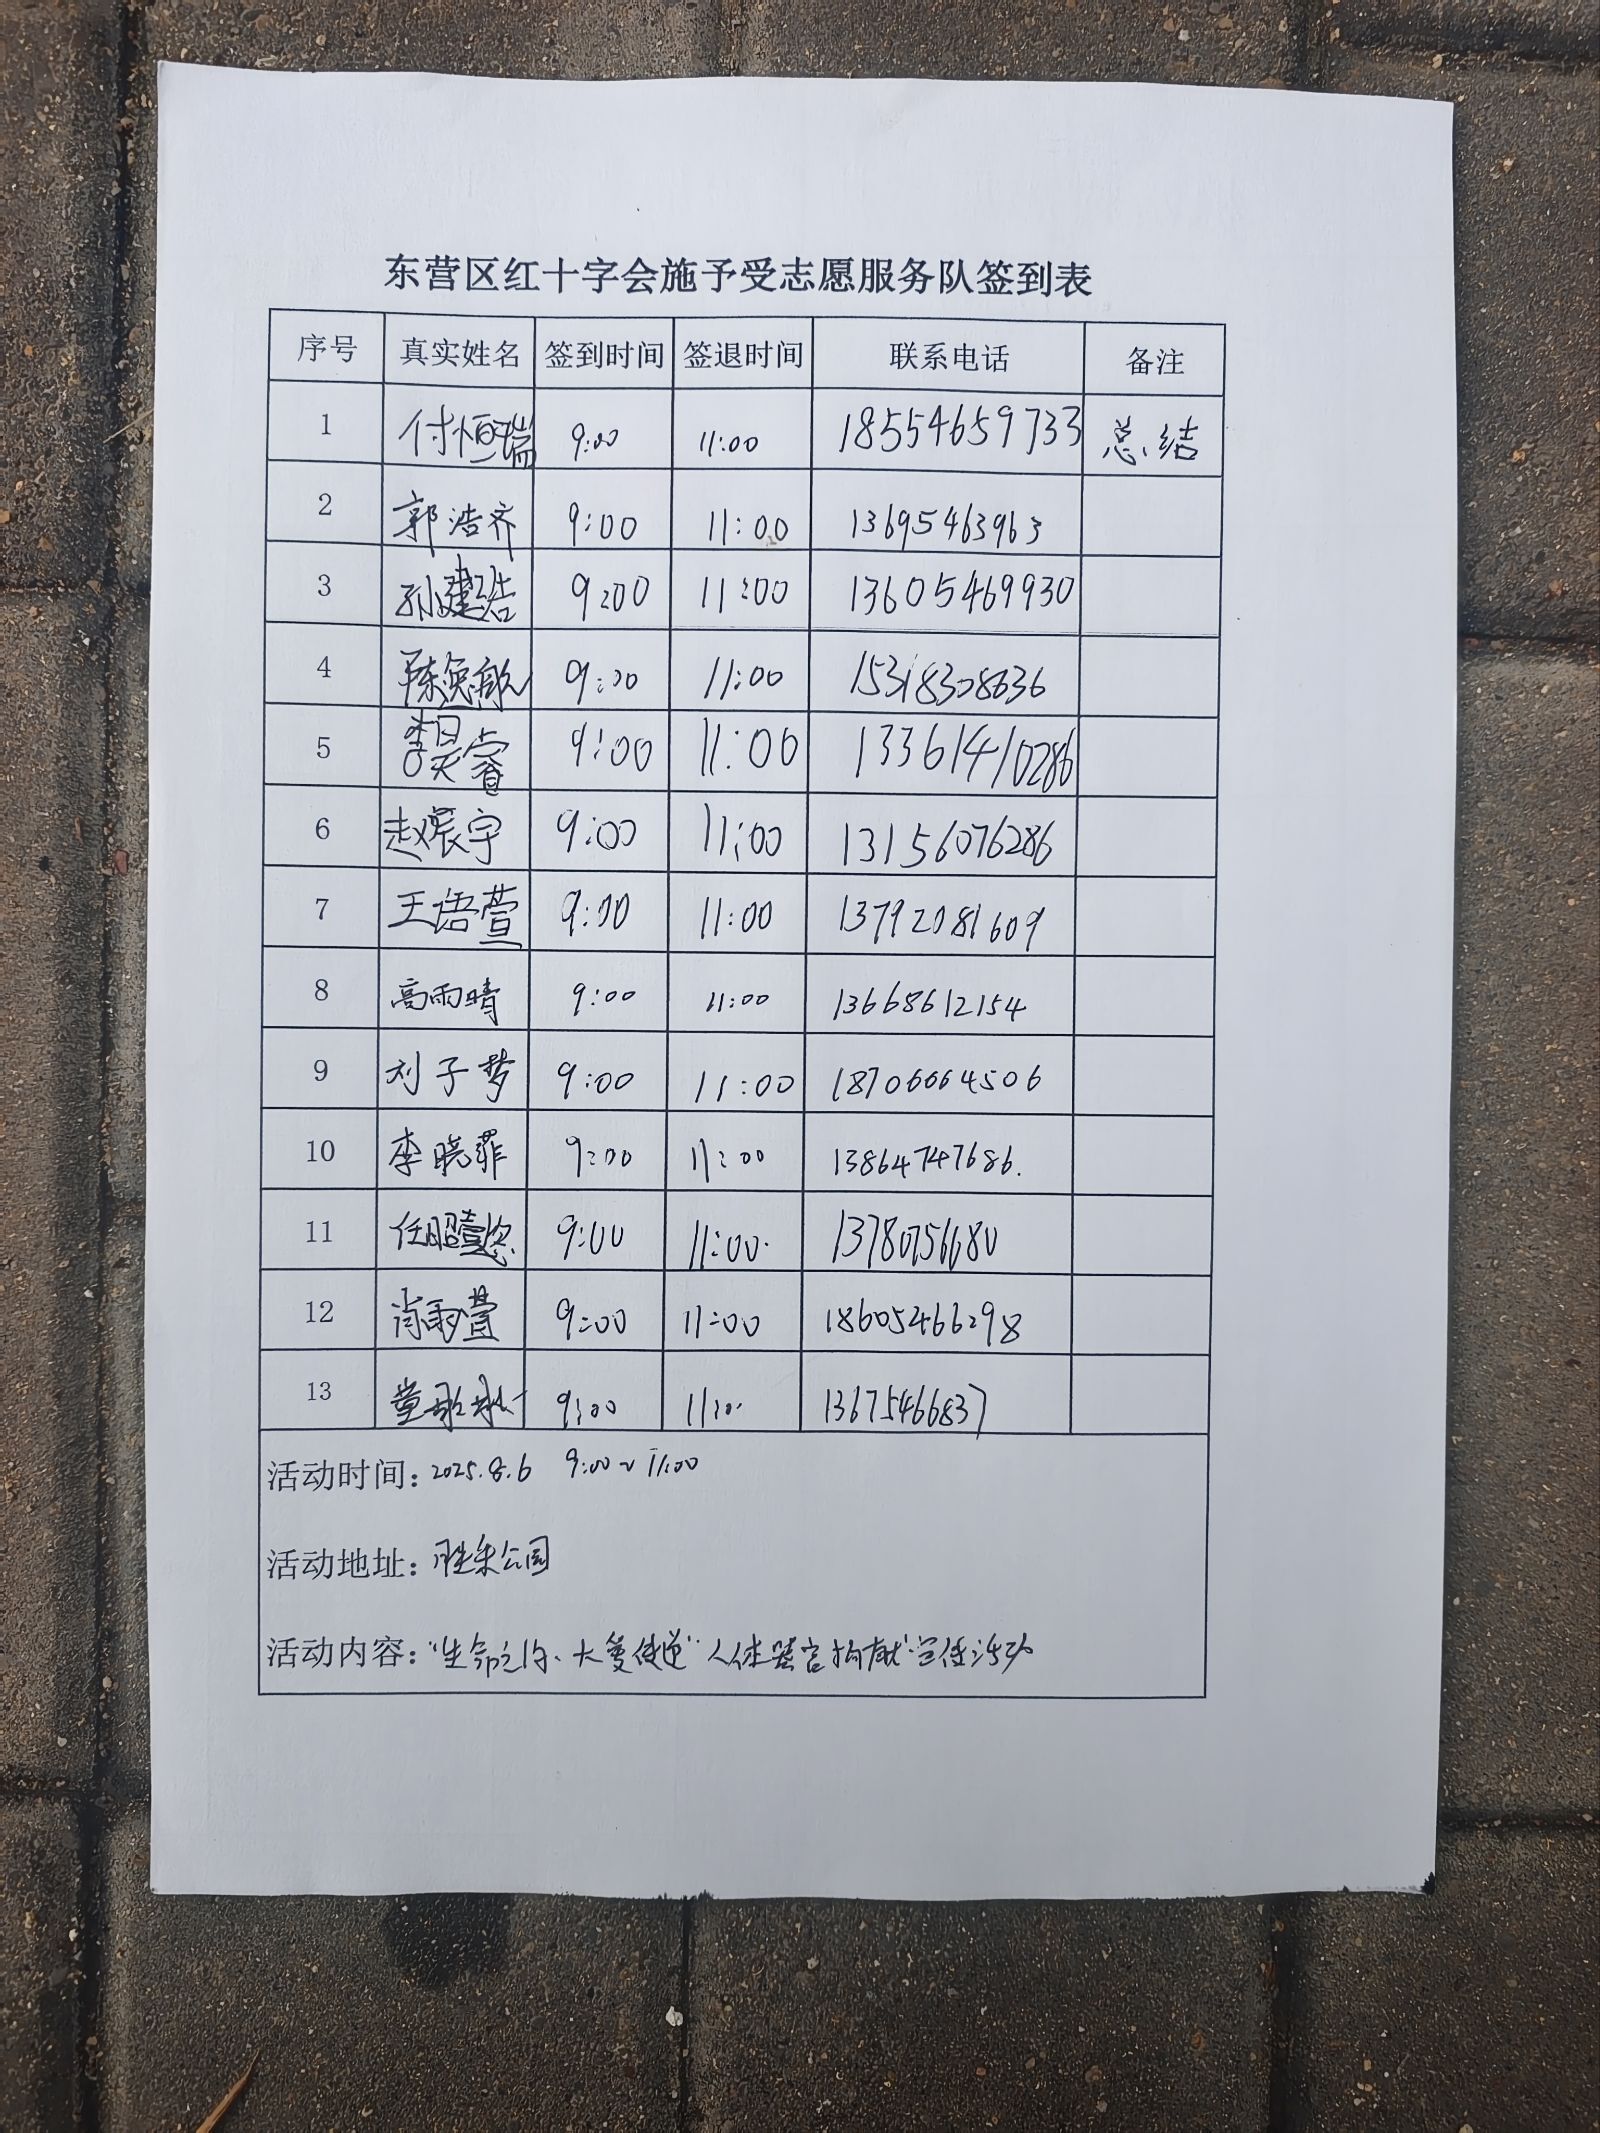 东营区红十字会施予受志愿服务队签到表
序号 真实姓名 签到时间 签退时间 联系电话 备注
1 付恒瑞 9:00 11:00 18554659733 总结
2 郭浩齐 9:00 11:00 13695463963
3 孙建浩 9:00 11:00 13605469930
4 陈奂 9:00 11:00 15318308636
5 李昊睿 9:00 11:00 13361410286
6 赵宸宇 9:00 11:00 13156076286
7 王语萱 9:00 11:00 13792081609
8 高雨晴 9:00 11:00 13668612154
9 刘子梦 9:00 11:00 18706664506
10 李晓菲 9:00 11:00 13864747686.
11 任昭 9:00 11:00
12 肖雨萱 9:00 11:00 18605466298
13 董 9:00 11:00 13675466837
活动时间:2025.8.6 9:00~11:00
活动地址:胜采公园
活动内容:“生命之约、大爱传递”人体器官捐献宣传活动